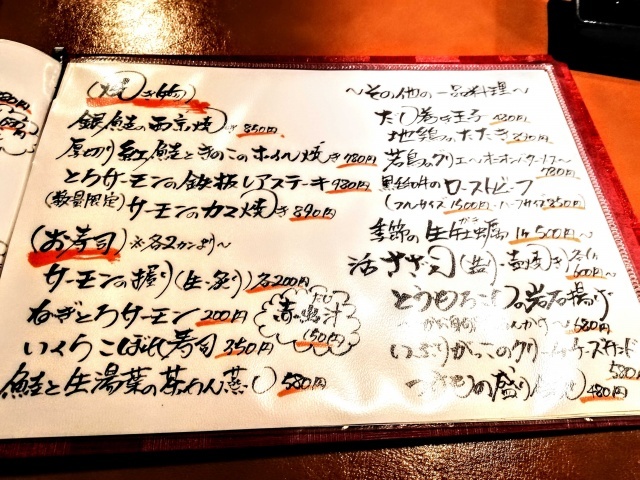 (焼き物)
銀鮭の西京焼き 850円
厚切り紅鮭ときのこのホイル焼き 780円
とろサーモンの鉄板レアステーキ 980円
(数量限定)サーモンのカマ焼き 890円
(お寿司) ※各2カンより〜
サーモンの握り(生・炙り)各200円
ねぎとろサーモン 200円
赤だし
150円
いくらこぼれ寿司 350円
鮭と生湯葉の茶わん蒸し 580円
〜その他の一品料理〜
だし巻き玉子
地鶏のたたき
若鳥のグリエ
780円
ローストビーフ
(フルサイズ 1500円 ハーフサイズ 850円)
季節の生牡蠣 1ヶ500円〜
活さざえ 各1ヶ
600円〜
とうもろこしの岩石揚げ
680円
いぶりがっこのクリームチーズサンド
580円
の盛り 480円